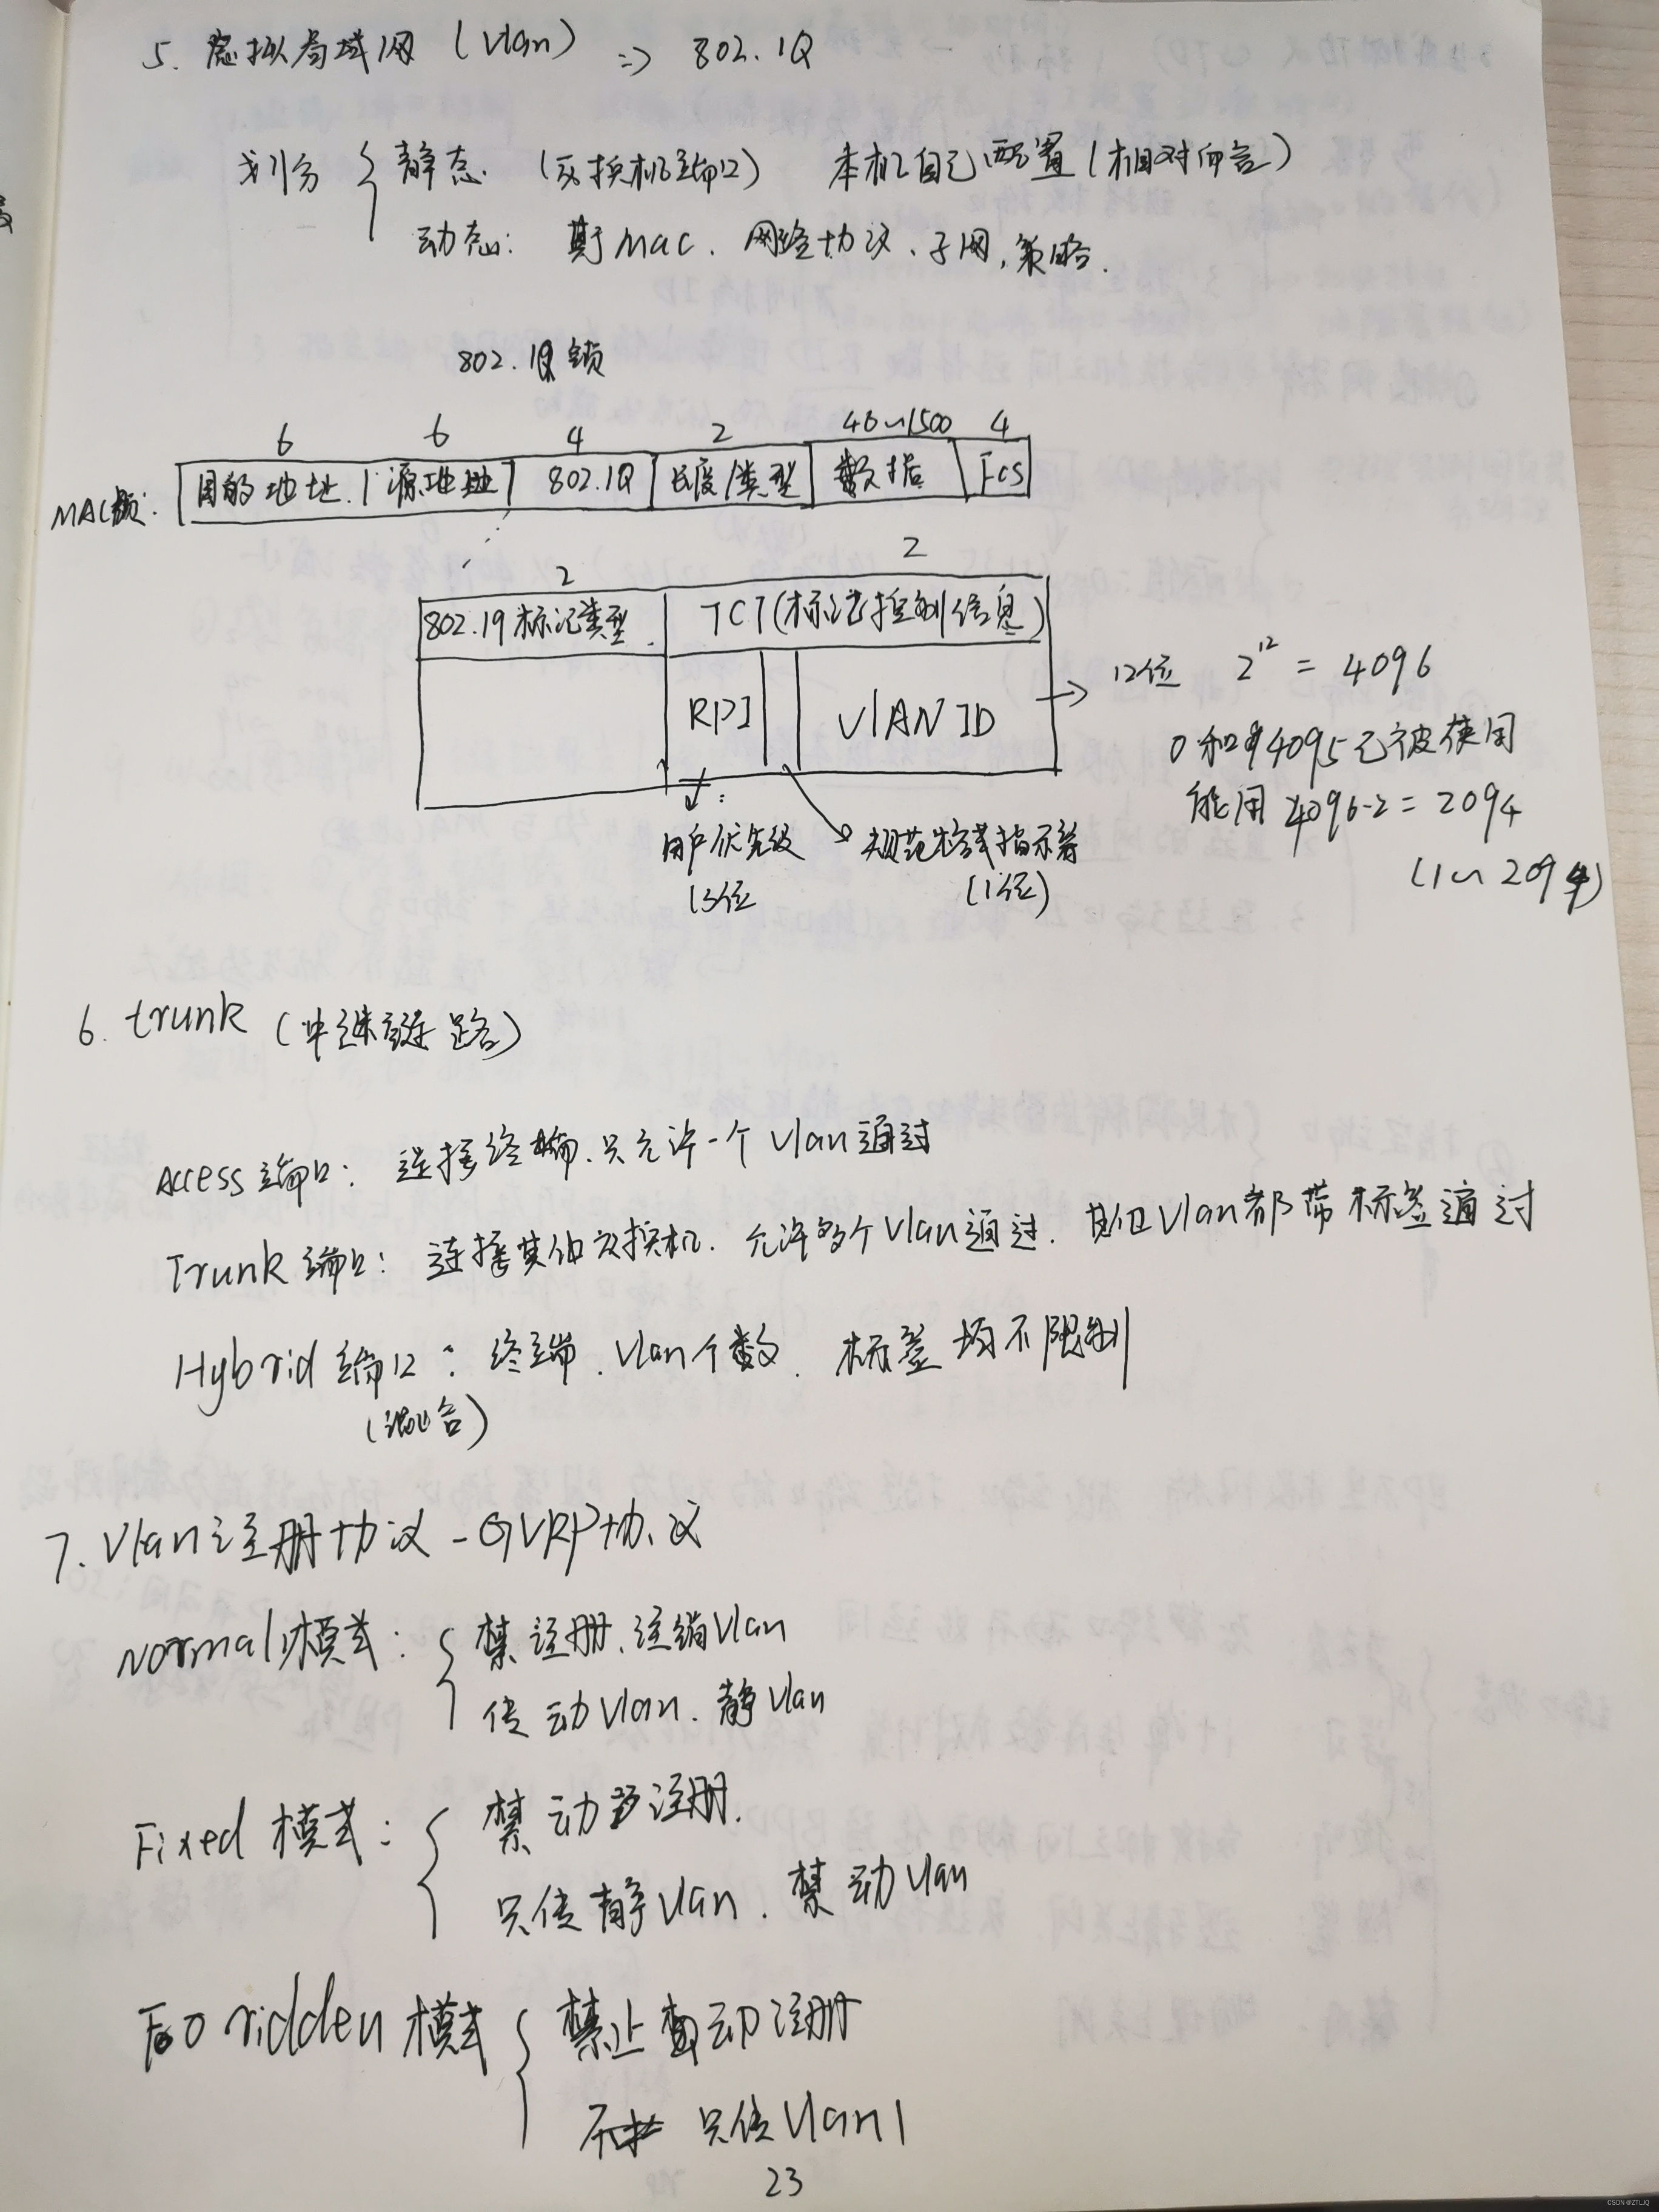 5. 虚拟局域网 (Vlan) => 802.1Q
划分 { 静态 (交换机端口) 本机自己配置(相对而言)
动态: 基于Mac、网络协议、子网、策略.
802.1Q 帧
6 6 4 2 46~1500 4
MAC帧: 目的地址 源地址 802.1Q 长度/类型 数据 FCS
2 2
802.1q标记类型 TCI(标记控制信息)
RPI VLAN ID → 12位 2^12 = 4096
0 和 4095已被使用
能用 4096-2 = 2094
(1~2094)
用户优先级 规范格式指示符
(3位 (1位)
6. trunk (中继链路)
Access端口: 连接终端、只允许一个Vlan通过
Trunk端口: 连接其他交换机、允许多个Vlan通过、其他Vlan都带标签通过
Hybrid端口: 终端、Vlan个数、标签均不限制
(混合)
7. Vlan注册协议 - GVRP协议
Normal模式: { 禁注册、注销Vlan
传动Vlan、静Vlan
Fixed模式: { 禁动注册.
只传静Vlan、禁动Vlan
Fooridden模式 { 禁止动注册
只传Vlan1
23
CSDN @ZTLJQ